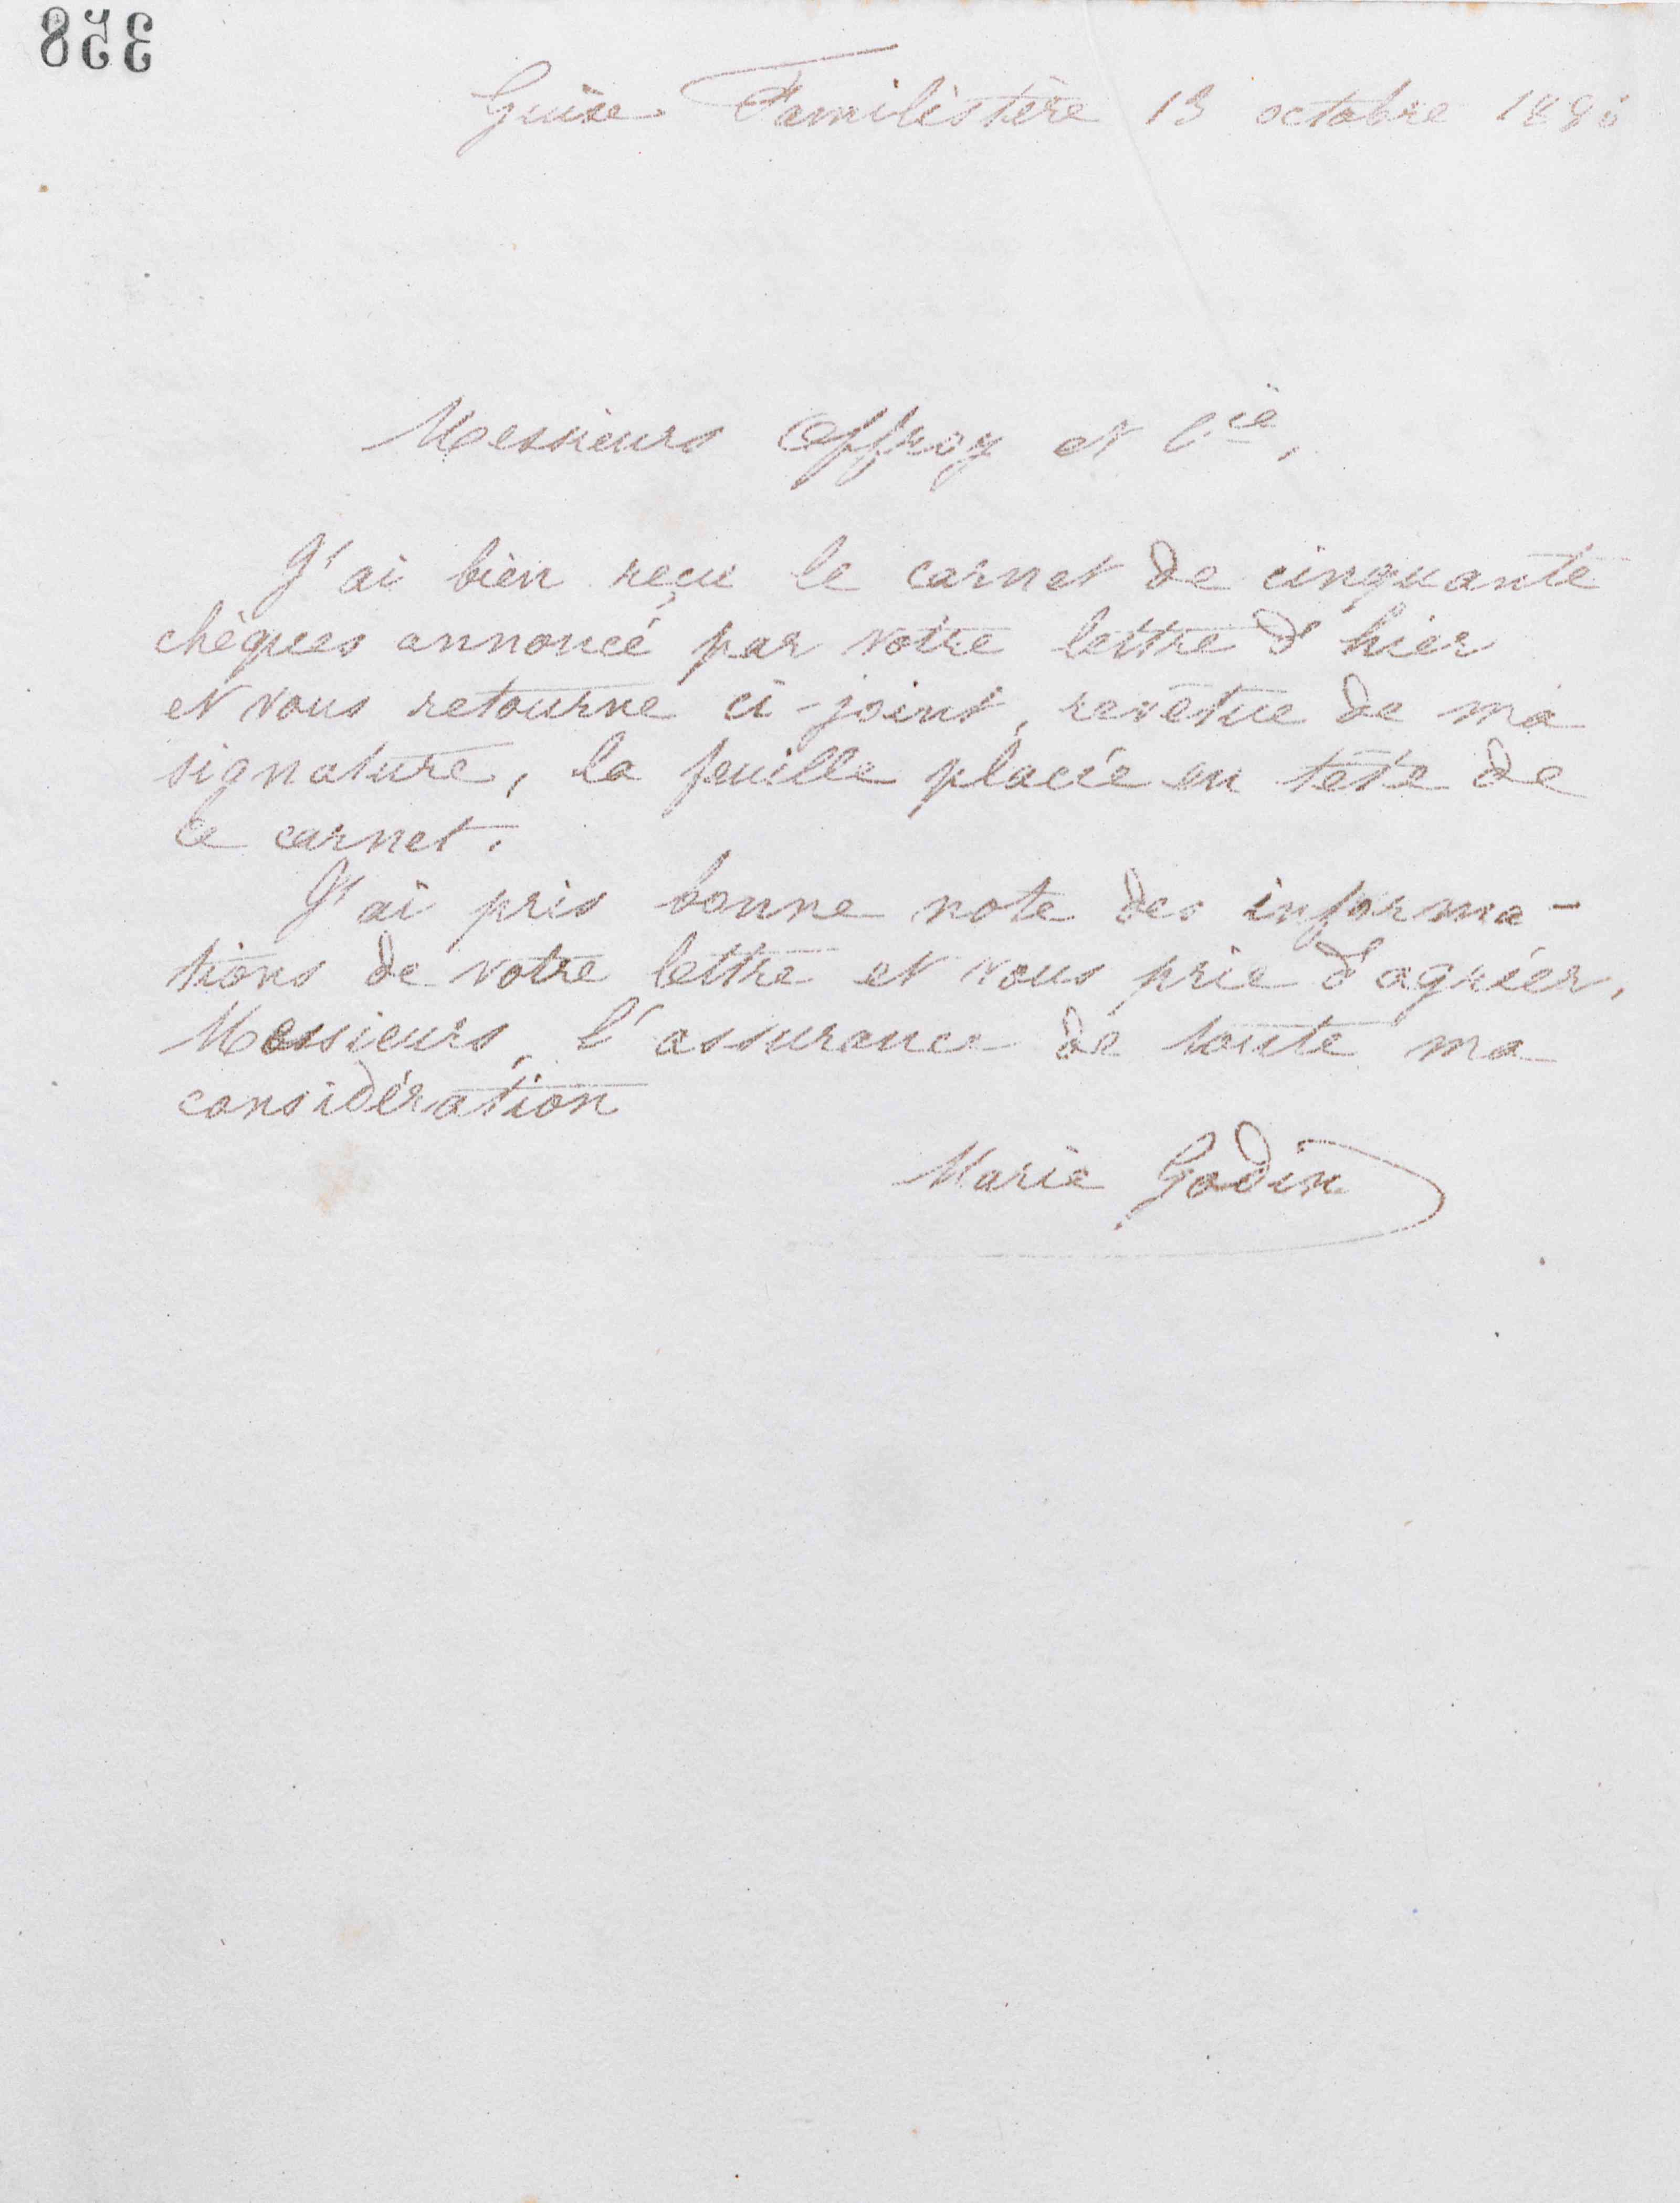 358
Guise Familistère 13 octobre 1890
Messieurs Offroy et Cie,
J'ai bien reçu le carnet de cinquante
chèques annoncé par votre lettre d'hier
et vous retourne ci-joint, revêtue de ma
signature, la feuille placée en tête de
ce carnet.
J'ai pris bonne note des informa-
tions de votre lettre et vous prie d'agréer,
Messieurs, l'assurance de toute ma
considération
Marie Godin